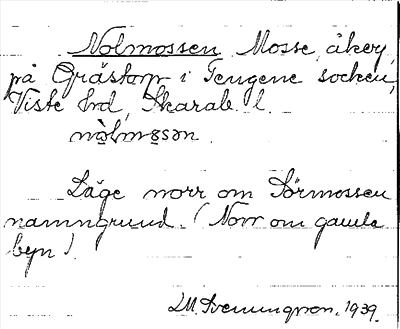 Nolmossen Mosse, åker,
på Grästorp i Tengene socken,
Viste hd, Skarab. l.
nòlmosən.
Läge norr om Sörmossen
namngrund. (Norr om gamla
byn).
J.M. Svenungson. 1939.